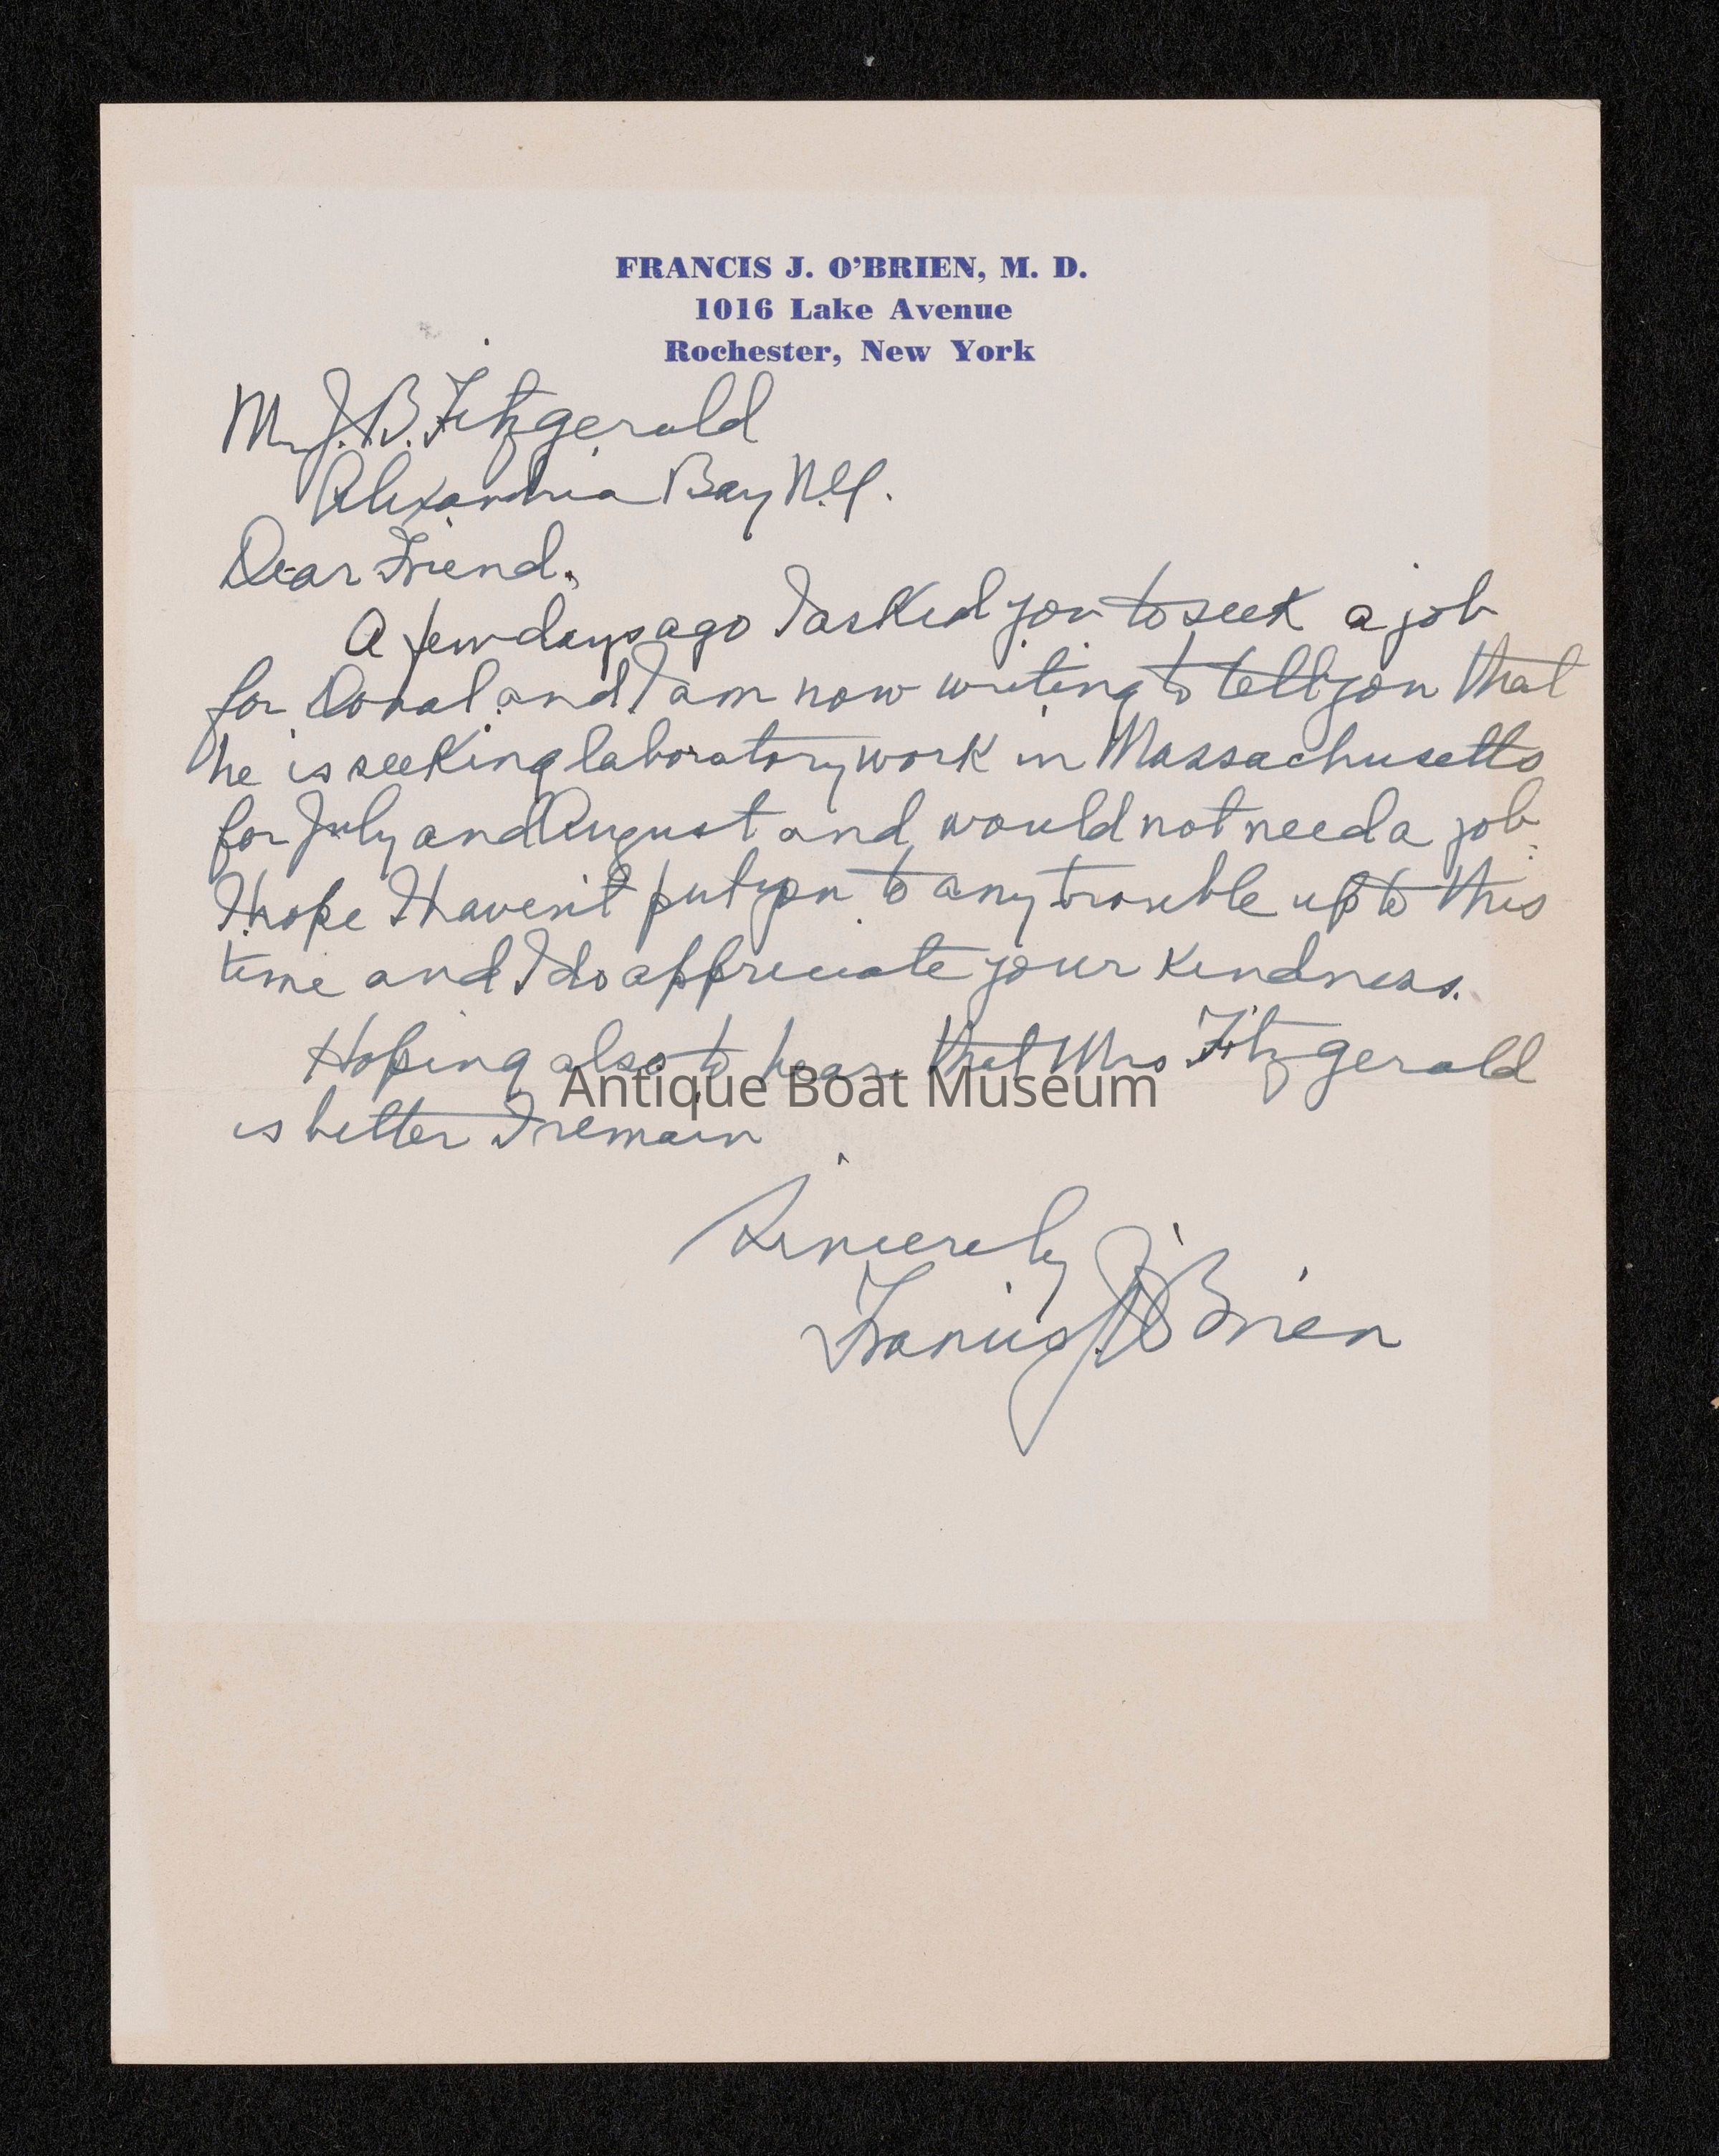 FRANCIS J. O'BRIEN, M. D.
1016 Lake Avenue
Rochester, New York
Mr J. B. Fitzgerald
Alexandria Bay N.Y.
Dear Friend,
A few days ago I asked you to seek a job
for Donal and I am now writing to tell you that
he is seeking laboratory work in Massachusetts
for July and August and would not need a job.
I hope I haven't put you to any trouble up to this
time and I do appreciate your kindness.
Hoping also to hear that Mrs Fitzgerald
Antique Boat Museum
is better I remain
Sincerely
Francis J. O'Brien